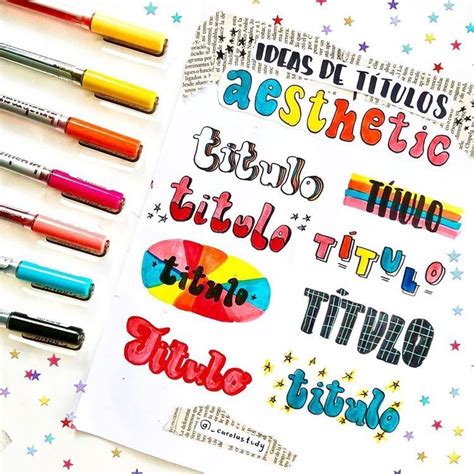 IDEAS DE TÍTULOS
aesthetic
título
TÍTULO
título
TÍTULO
título
TÍTULO
Título
título
@_carolastudy